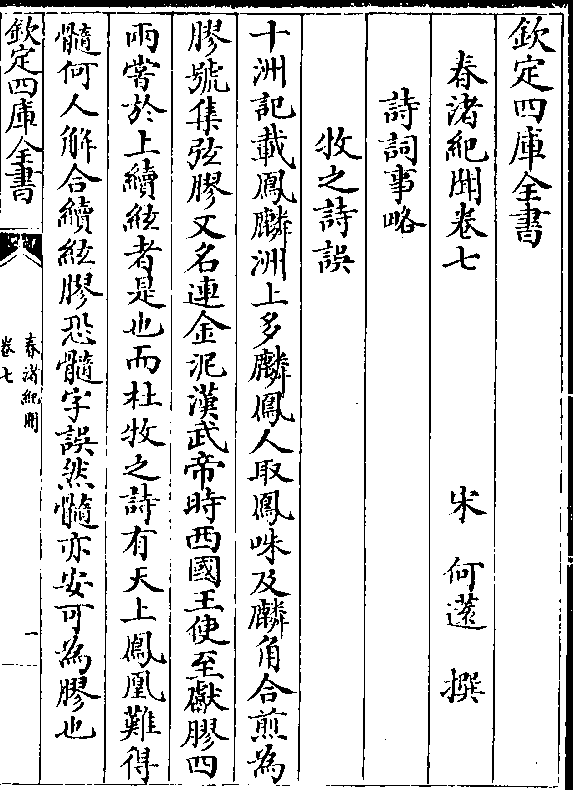 欽定四庫全書
春渚紀聞卷七
宋 何薳 撰
詩詞事略
牧之詩誤
十洲記載鳳麟洲上多麟鳳人取鳳咮及麟角合煎為
膠號集弦膠又名連金泥漢武帝時西國王使至獻膠四
兩嘗於上續絃者是也而杜牧之詩有天上鳳凰難得
髓何人解合續絃膠恐髓字誤然髓亦安可為膠也
欽定四庫全書
春渚紀聞
卷七
一